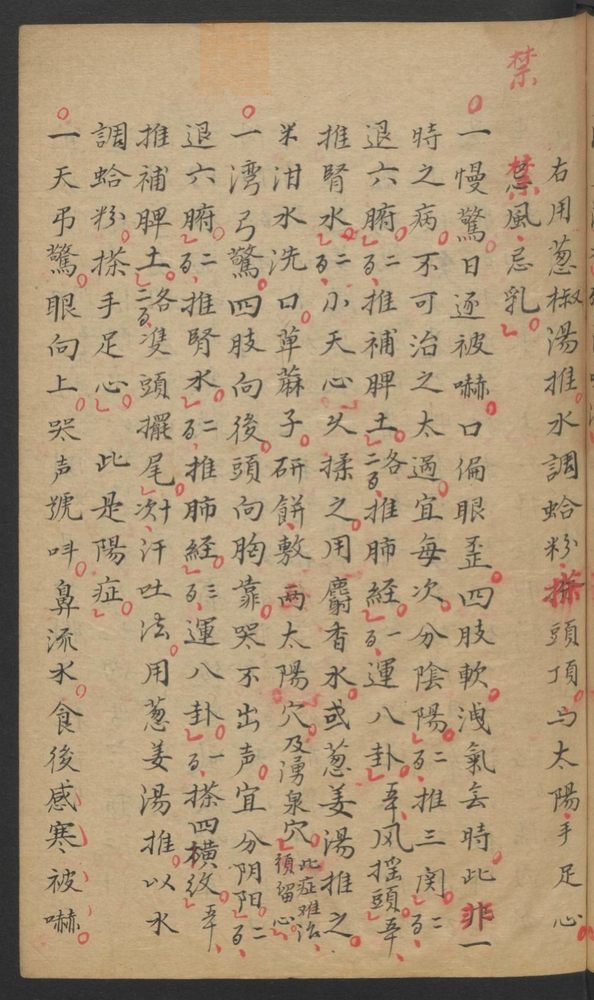 禁
右用葱椒湯推水調蛤粉搽頭頂与太陽手足心
禁忌風忌乳
一慢驚日逐被嚇口偏眼歪四肢軟洩氣無時此非一
時之病不可治之太過宜每次分陰陽二百推三関二百
退六腑二百推補脾土各二百推肺経一百運八卦五十風搖頭五十
推腎水二百小天心久揉之用麝香水或葱姜湯推之
米泔水洗口萆蔴子研餅敷两太陽穴及湧泉穴此症难治須留心
一湾弓驚四肢向後頭向胸靠哭不出声宜分阴阳二百
退六腑二百推腎水二百推肺經三百運八卦一百搽四橫紋五十
推補脾土各二百雙頭擺尾次十汗吐法用葱姜湯推以水
調蛤粉搽手足心此是陽症
一天弔驚眼向上哭声號呌鼻流水食後感寒被嚇